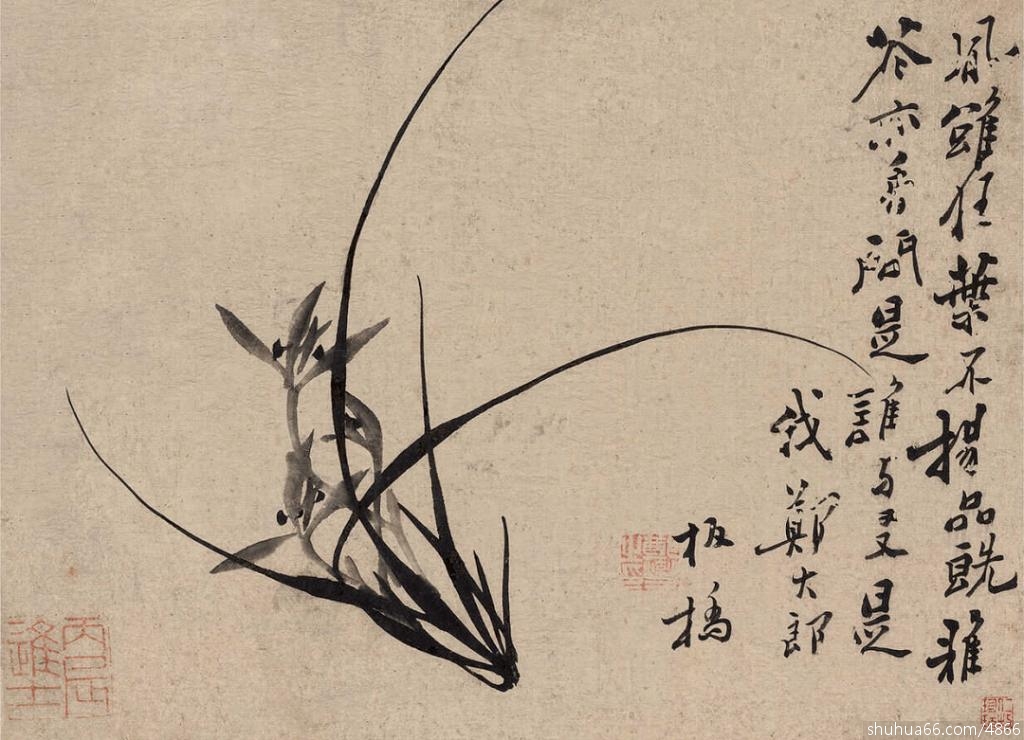 風雖狂葉不揚品既雅
花亦香問是誰与友是
我鄭大郎
板橋
丙辰進士
shuhua66.com/4866